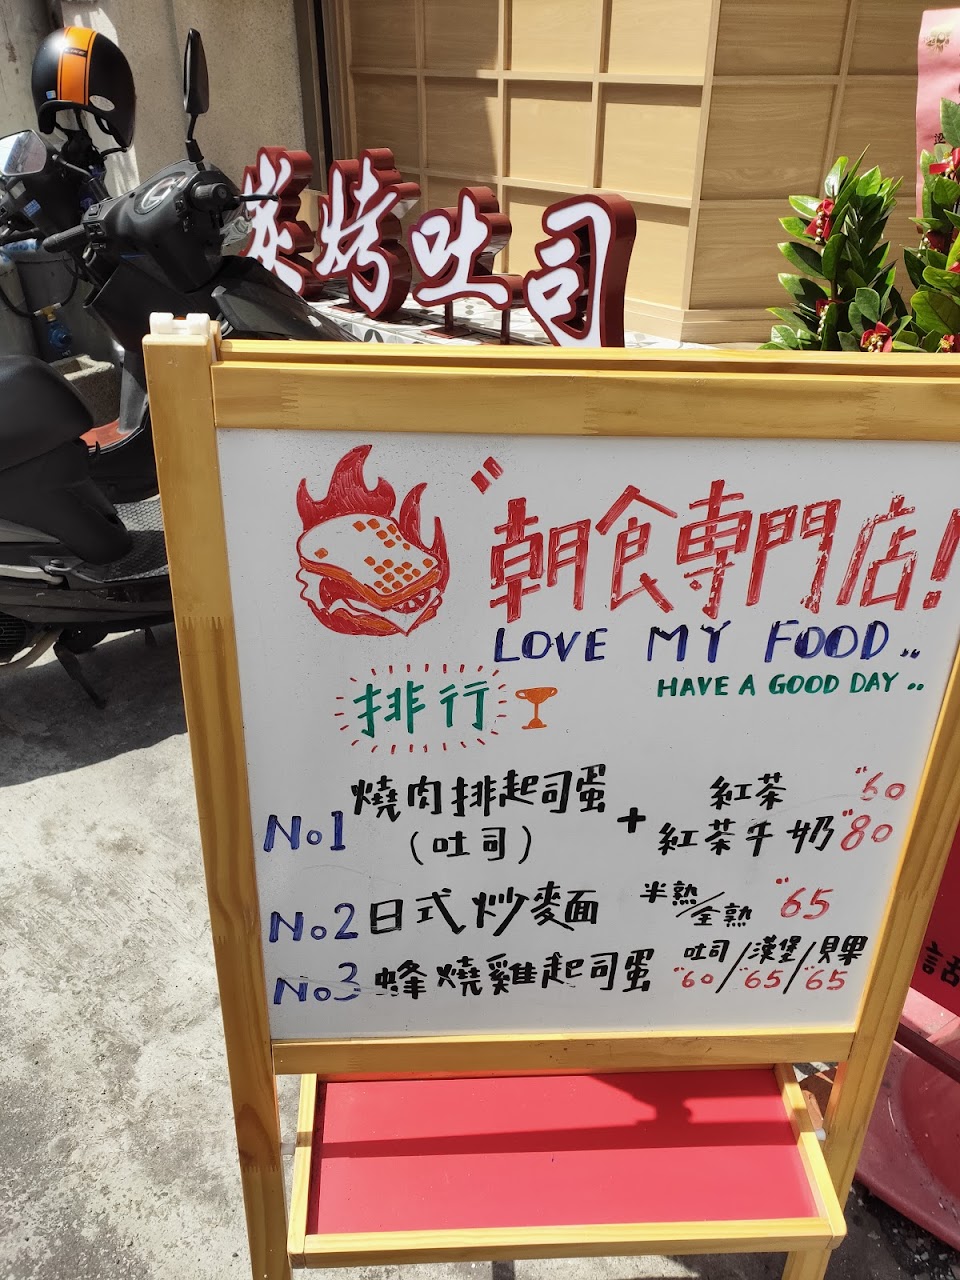 炭烤吐司
"朝食専門店!
LOVE MY FOOD..
HAVE A GOOD DAY..
排行
No1 燒肉排起司蛋 (吐司) + 紅茶 "60
紅茶牛奶 "80
No2 日式炒麵 半熟/全熟 "65
No3 蜂燒雞起司蛋 吐司/漢堡/貝果
"60/"65/"65